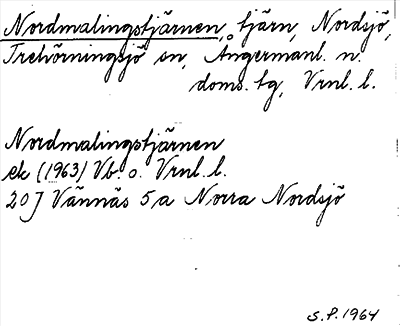 Nordmalingstjärnen, tjärn, Nordsjö,
Trehörningsjö sn, Ångermanl. n.
doms. tg, Vrnl. l.
Nordmalingstjärnen
ek (1963) Vb. o. Vrnl. l.
20J Vännäs 5a Norra Nordsjö
S.P. 1964